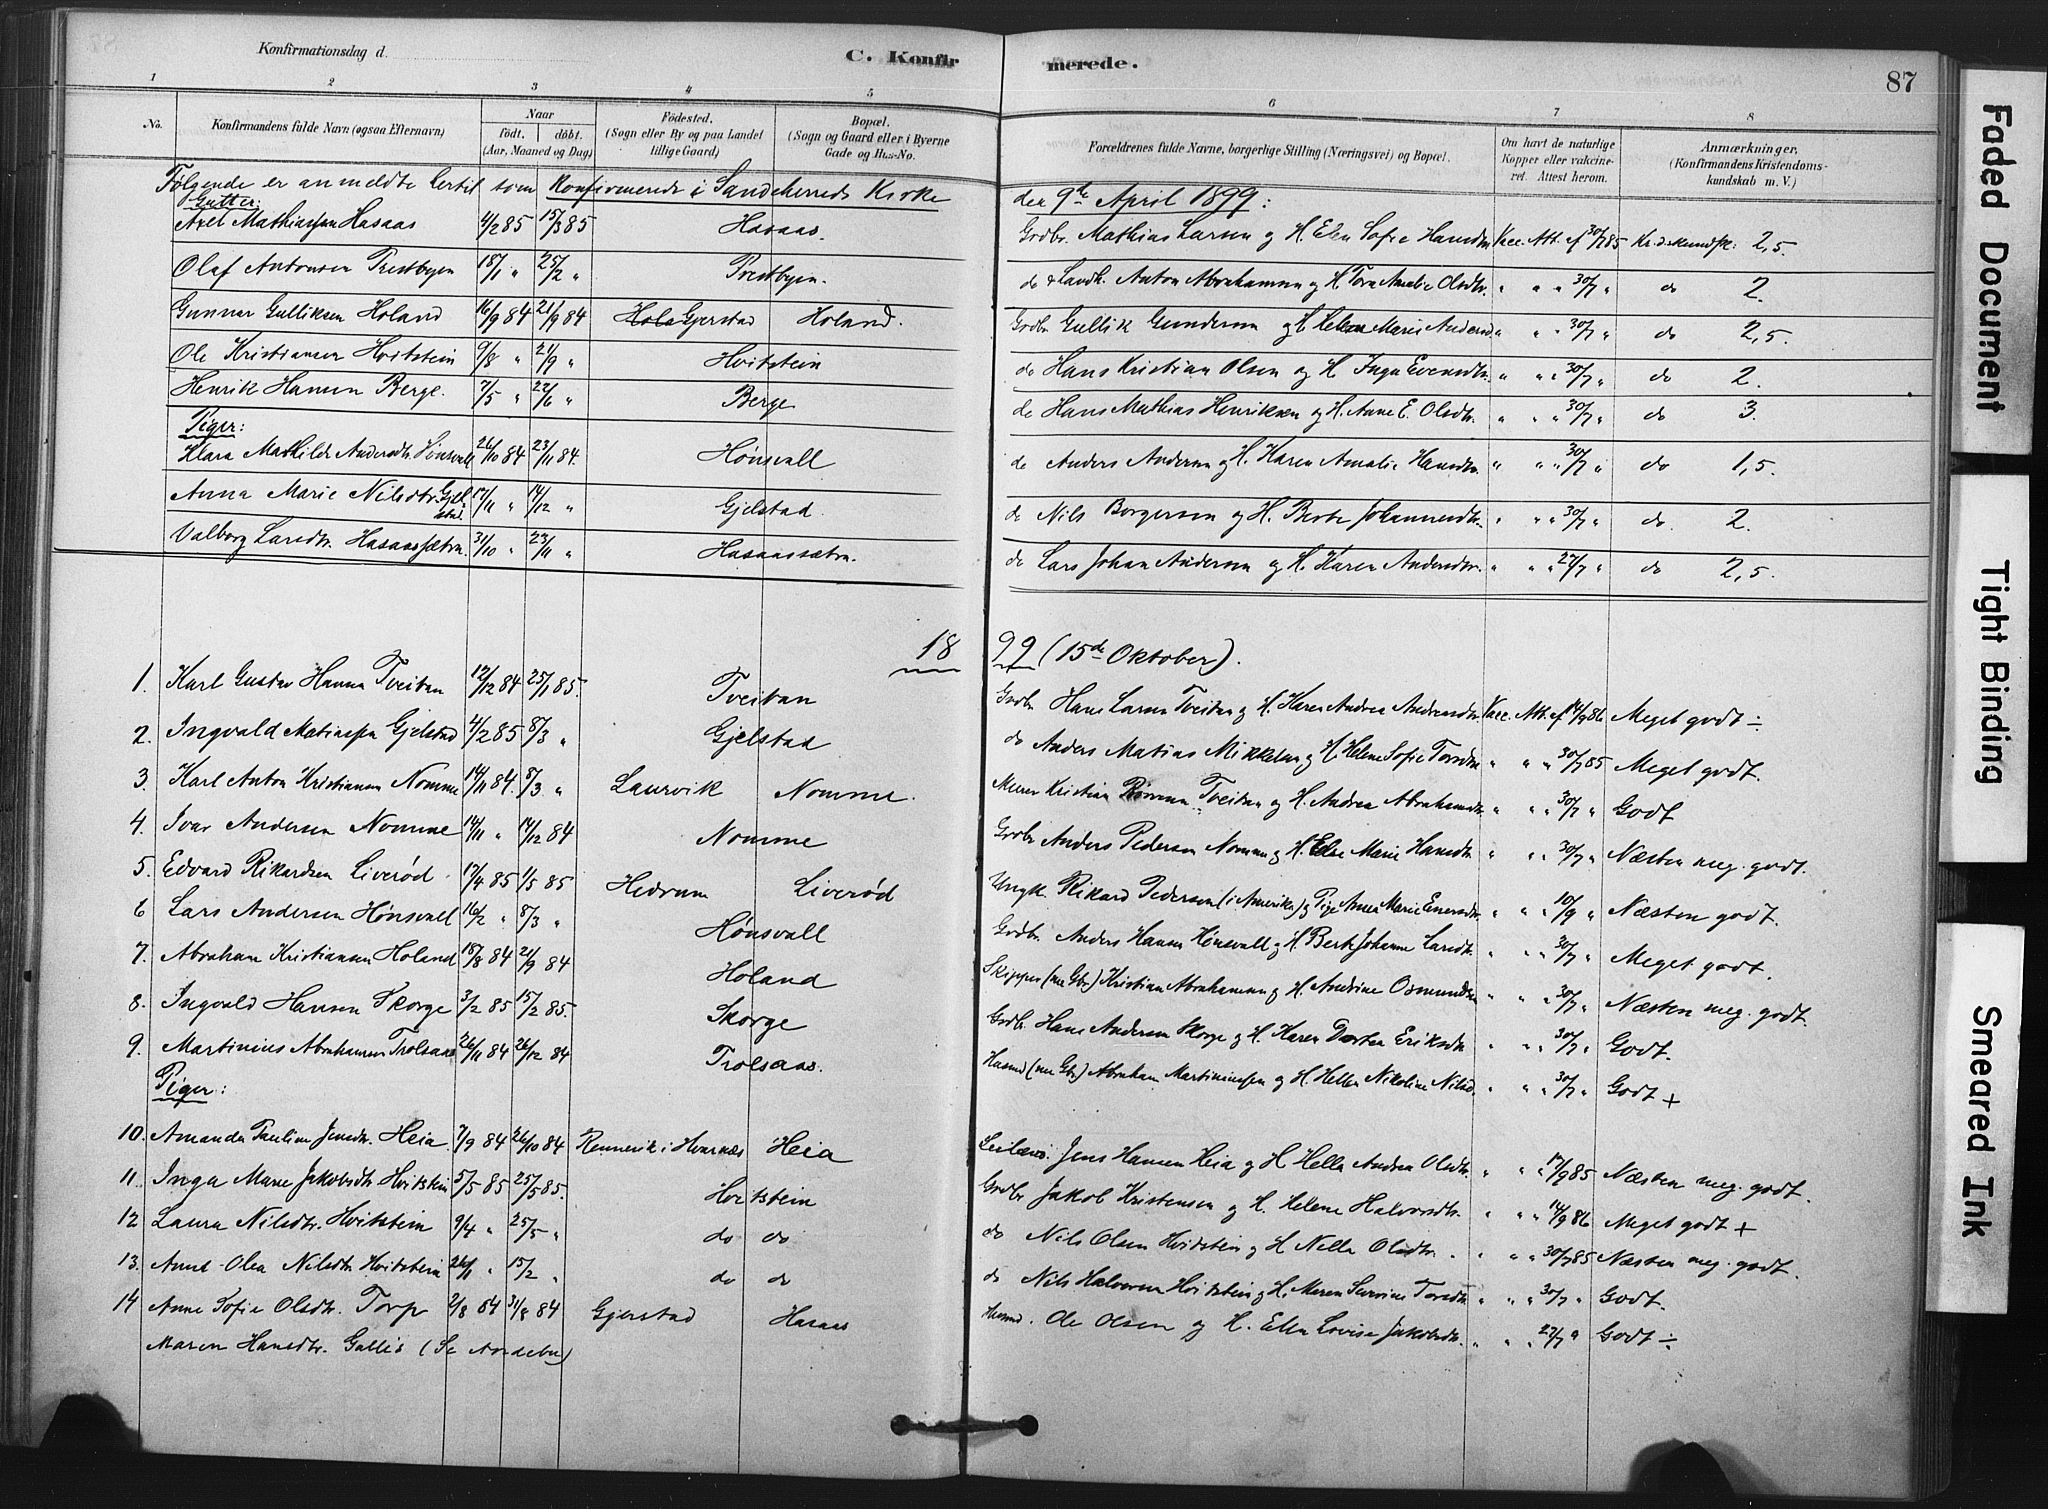 Konfirmationsdag d.
C. Konfirmerede.
87
1 2 3 4 5 6 7 8
No.
Konfirmandens fulde Navn (ogsaa Efternavn)
Naar
født. døbt.
(Aar, Maaned og Dag)
Fødested.
(Sogn eller By og paa Landet
tillige Gaard)
Bopæl.
(Sogn og Gaard eller i Byerne
Gade og Hus-No.
Forældrenes fulde Navne, borgerlige Stilling (Næringsvei) og Bopæl.
Om havt de naturlige
Kopper eller vakcine-
ret. Attest herom.
Anmærkninger,
(Konfirmandens Kristendoms-
kundskab m. V.)
Følgende er anmeldte hertil som konfirmerede i Sandeherreds Kirke den 9de April 1899:
Gutter:
Axel Mathiassen Hasaas 4/2 85 15/3 85 Hasaas. Grdbr. Mathias Larsen og H. Elen Sofie Hansdtr. Vacc. Att. af 30/7 85 Kr.d.skundsk: 2,5.
Olaf Antonsen Prestbyen 18/1 " 25/2 " Prestbyen. do & Landh. Anton Abrahamsen og H. Tora Amalie Olsdtr. " " " 30/7 " do 2.
Gunnar Gulliksen Holand 16/9 84 21/9 84 Gjerstad Holand. Grdbr Gullik Gundersen og H. Helene Marie Andersd " " " 30/7 " do 2,5.
Ole Kristiansen Hvitstein 9/8 " 21/9 " Hvitstein do Hans Kristian Olsen og H. Inga Evensdtr. " " " 30/7 " do 2.
Henrik Hansen Berge. 7/5 " 22/6 " Berge do Hans Mathias Henriksen og H. Anne E. Olsdtr. " " " 30/7 " do 3.
Piger:
Klara Mathilde Andersdtr. Hønsvall 26/10 84 23/11 84. Hønsvall do Anders Andersen og H. Karen Amalie Hansdtr. " " " 30/7 " do 1,5.
Anna Marie Nilsdtr. Gjelstad. 17/11 " 14/12 " Gjelstad. do Nils Borgersen og H. Berte Johannesdtr. " " " 30/7 " do. 2.
Valborg Larsdtr. Hasaassætra. 31/10 " 23/11 " Hasaassætra. do Lars Johan Andersen og H. Karen Andersdtr. " " " 27/7 " do 2,5.
1899 (15de Oktober).
1. Karl Gustav Hansen Tveitan 12/12 84 25/1 85. Tveitan Grdbr Hans Larsen Tveitan og H. Karen Andrea Andersdtr. Vacc. Att. af 14/9 86 Meget godt ÷
2. Ingvald Matiassen Gjelstad 4/2 85 8/3 " Gjelstad do Anders Matias Mikkelsen og H. Helene Sofie Torsdtr " " " 30/7 85 Meget godt.
3. Karl Anton Kristiansen Nomme 14/11 84. 8/3 " Laurvik Nomme. Murer Kristian Tveitan og H. Andrea Abrahamsdtr " " " 30/7 " Godt
4. Ivar Andersen Nomme 14/11 " 14/12 84 Nomme Grdbr Anders Pedersen Nomme og H. Else Marie Hansdtr " " " 30/7 " Næsten meg. godt.
5. Edvard Rikardsen Liverød 17/4 85 1/5 85 Hedrum Liverød Ungk. Rikard Pedersen (i Amerika) og Pige Anna Marie Enersdtr. " " " 10/9 " Næsten godt.
6 Lars Andersen Hønsvall 16/2 " 8/3 " Hønsvall Grdbr. Anders Hansen Hønsvall og H. Berte Johanne Larsdtr. " " " 30/7 " Meget godt.
7. Abraham Kristiansen Holand 18/8 84 21/9 84 Holand Skipper (nu Gbr) Kristian Abrahamsen og H. Andrine Osmundsen " " " 30/7 " Næsten meg. godt.
8. Ingvald Hansen Skorge 3/2 85 15/2 85. Skorge Grdbr Hans Andersen Skorge og H. Karen Dortea Eriksdtr " " " 30/7 " Godt.
9. Martinius Abrahamsen Trolsaas 26/11 84 26/12 84 Trolsaas. Husmd (nu Gbr) Abraham Martiniussen og H. Helle Nikoline Nilsd. " " " 30/7 " Godt +
Piger:
10. Amanda Pauline Jensdtr. Heia 7/9 84 26/10 84 Rennevik i Hvarnæs Heia Leilænd: Jens Hansen Heia og H Helle Andrea Olsdtr. " " " 17/9 85 Næsten meg. godt.
11. Inga Marie Jakobsdtr Hvitstein 5/5 85 25/5 85. Hvitstein Grdbr Jakob Kristensen og H. Helene Halvorsdtr. " " " 14/9 86 Meget godt +
12 Laura Nilsdtr. Hvitstein 9/4 " 25/5 " do do do Nils Olsen Hvitstein og H Nella Olsdtr. " " " 30/7 85 Næsten meg. godt.
13. Anne Olea Nilsdtr Hvitstein 26/1 " 15/2 " do do do Nils Halvorsen Hvitstein og H. Maren Severine Torsdtr " " " 30/7 " Godt.
14 Anne Sofie Olsdtr. Torp 2/8 84 31/8 84 Gjerstad Hasaas Husmd. Ole Olsen og H. Ellen Lovise Jakobsdtr. " " " 27/7 " Godt ÷
Maren Hansdtr. Gallis (Se Andebu)
Faded Document
Tight Binding
Smeared Ink